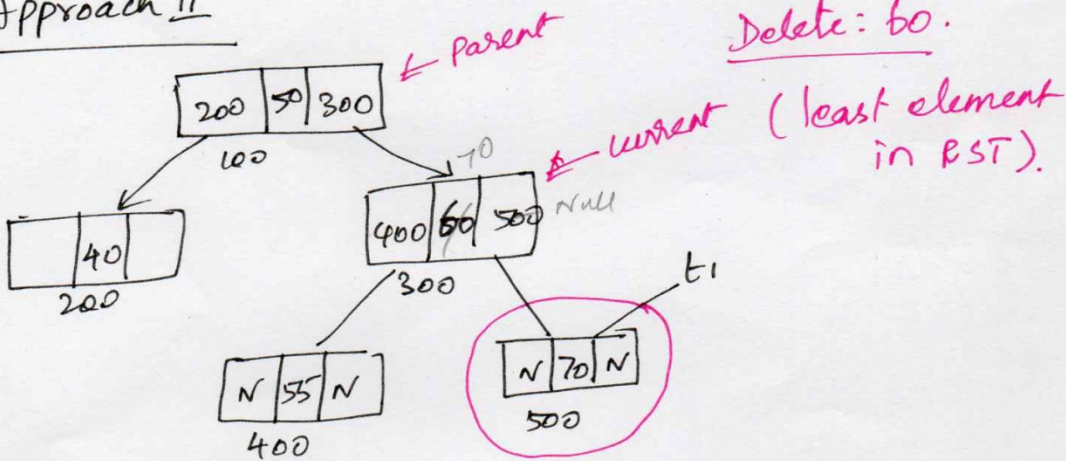 Approach II
Parent
Delete: 60.
200 50 300
100
current (least element
in RST).
70
400 60 500 Null
300
40
200
t1
N 55 N
400
N 70 N
500